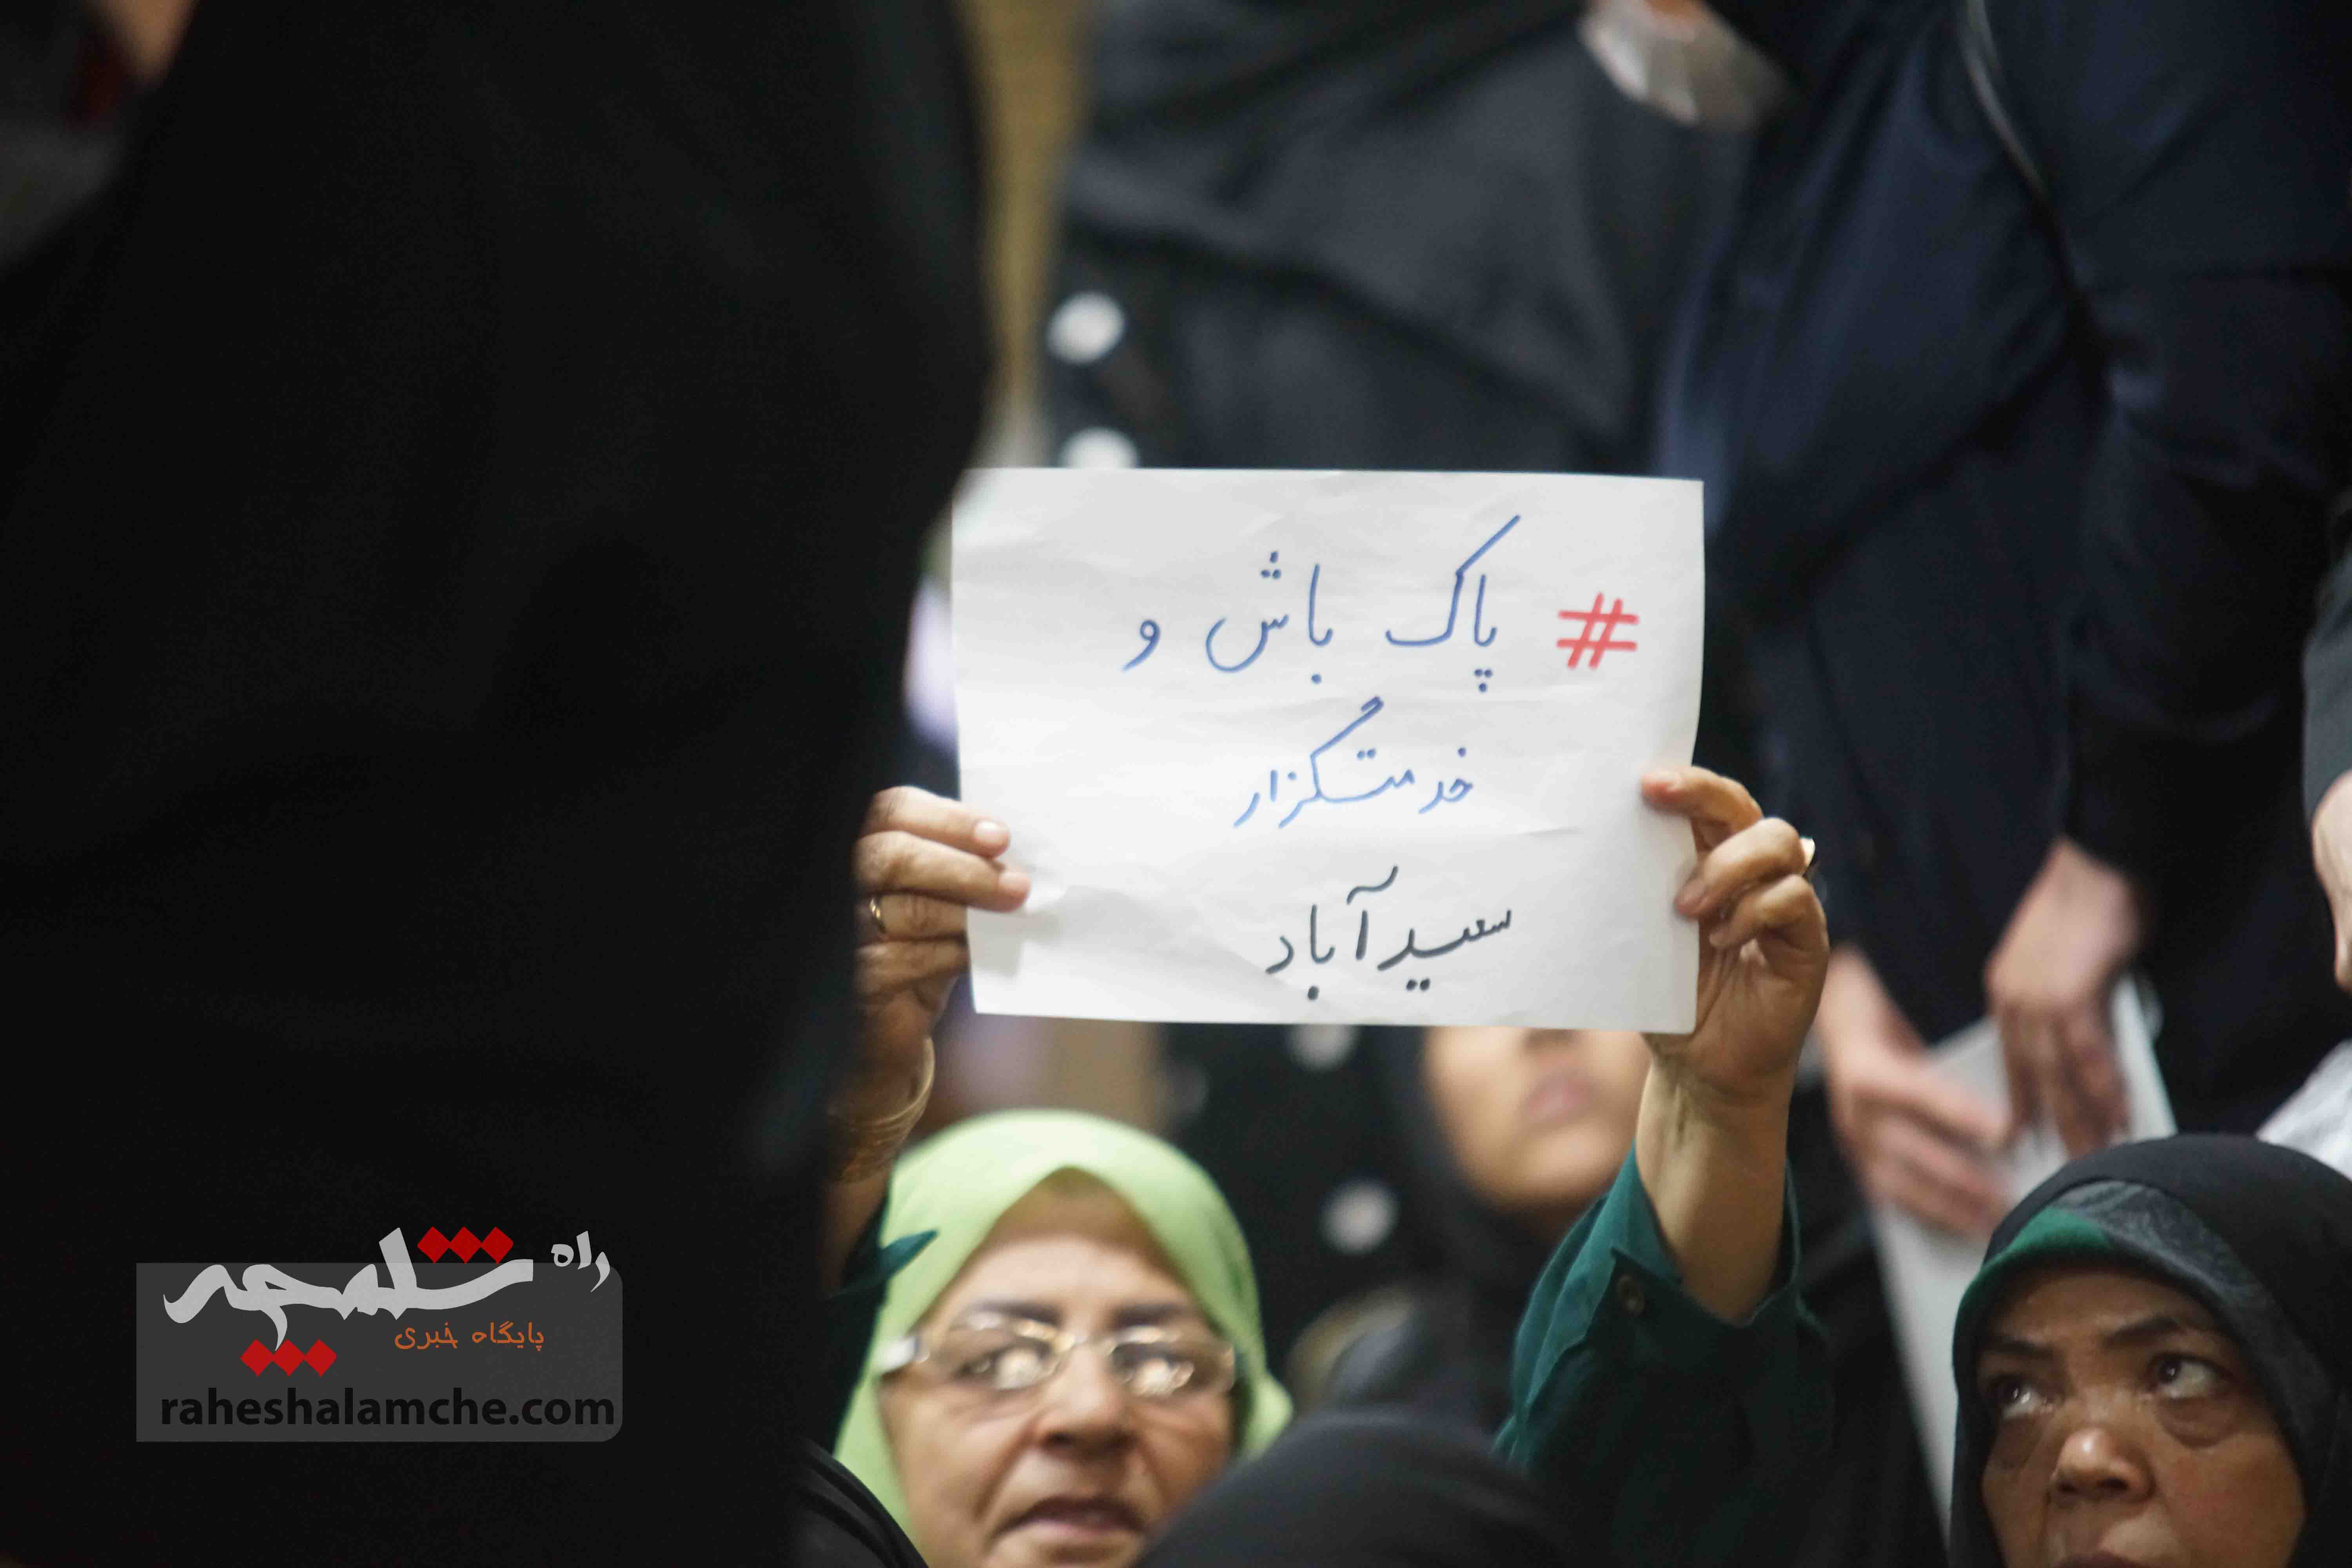 # پاک باش و
خدمتگزار
سعیدآباد
راه شلمچه
پایگاه خبری
raheshalamche.com